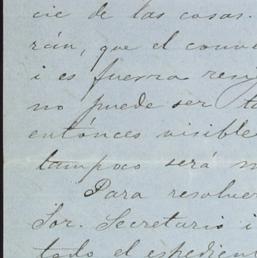 cie de las cosas.
rán, que el conv
i es fuerza resi
no puede ser ta
entónces visible
tampoco será m
Para resolver
Sor. Secretario i
todo el espedien